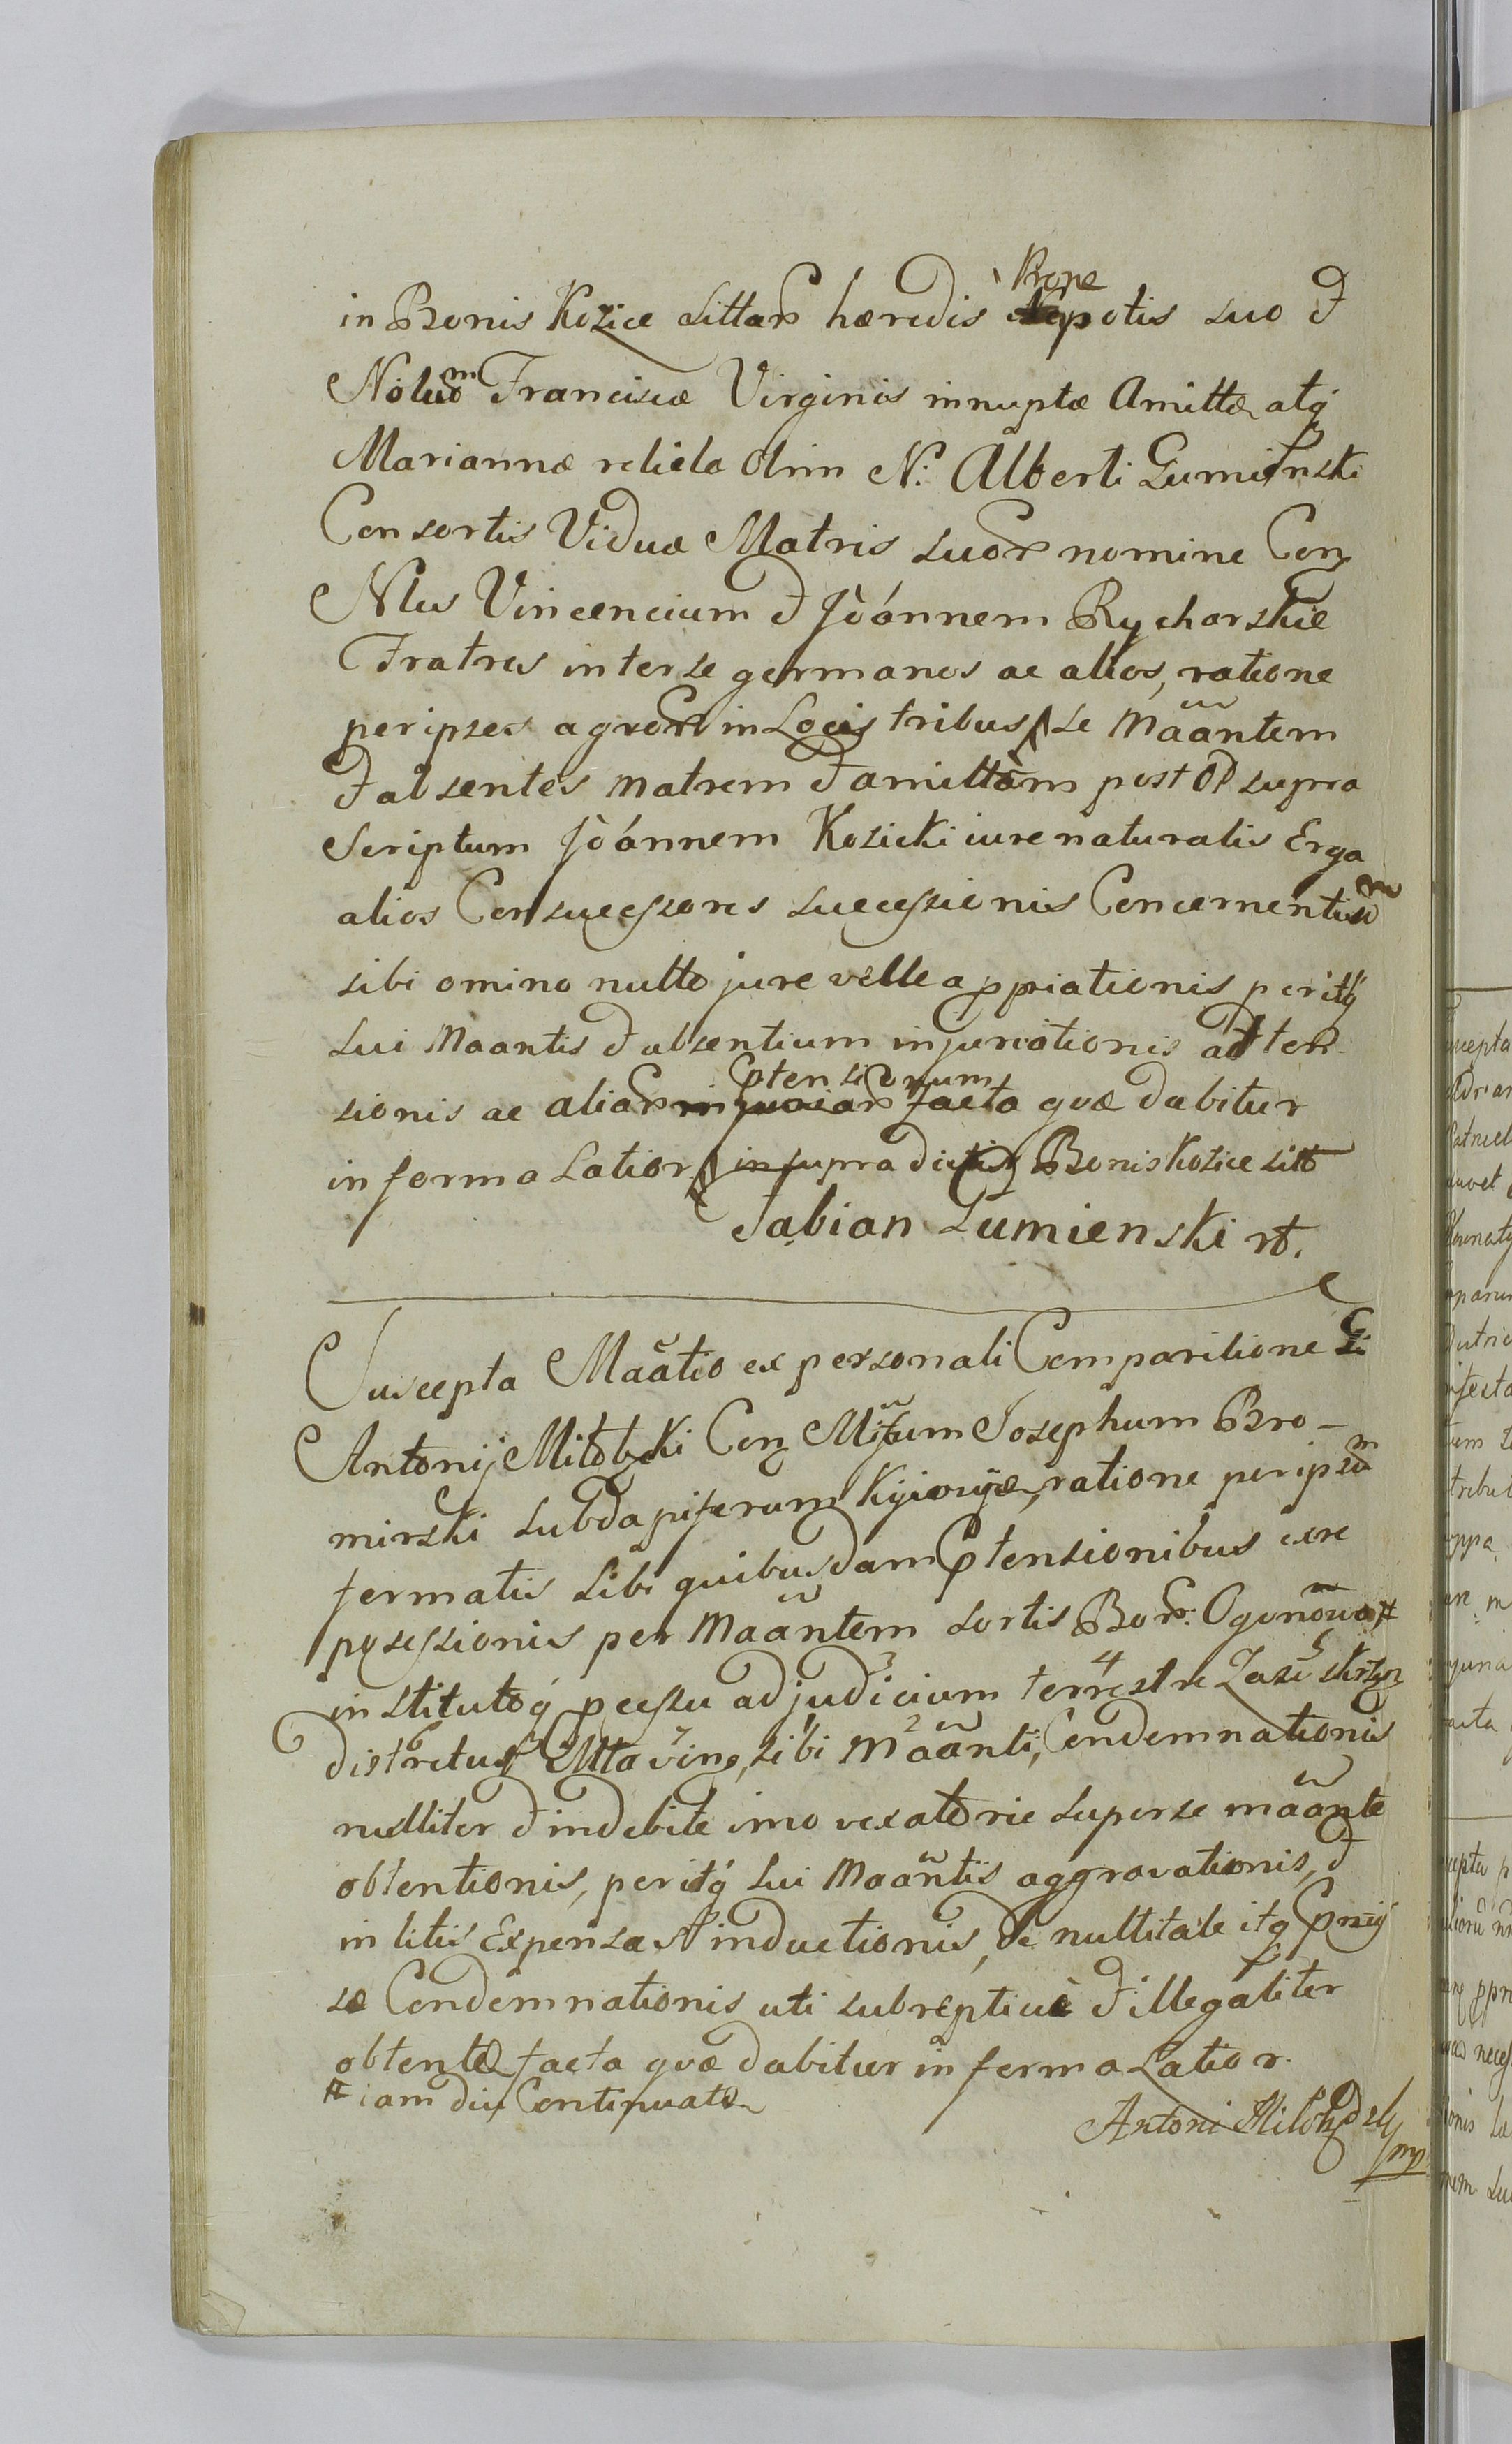 in Bonis Kozice Littar hæredis Prone Nepotis suo et
Nobium Franciscæ Virginis innuptæ Amittæ atq
Mariannæ relicta olim N. Alberti Gumienski
Consortis Viduæ Matris suor nomine Con
Nlus Vincencium et Joánnem Rycharskie
Fratres inter se germanos ac alios, ratione
per ipsos agror in Locis tribus se Maantem
et absentes Matrem et amittam post supra
Scriptum Joánnem Kosicki iure naturalis Erga
alios Consucessores sucessionis Concernentium
sibi omino nullo jure velle appriationis peritq
sui Maantis et absentium injuriationis
sionis ac aliar injuriar ptensionum facta quæ dabitur
in forma Latior in supra dictis Bonis Kozice litt
Fabian Gumienski
Suscepta Maãtio ex personali Comparitione Gi
Antonij Milobędzki Con Mifum Josephum Bro-
mirski Subdapiferum Kijoviæ, ratione per ipsum
formatis sibi quibusdam ptensionibus exre
posessionis per Maantem sortis Bor: Ogonowo #
institutoq pcessu ad judicium 3 terrestre 4 Zaw 5 skrzyn
distretus 6 Mta 7 vine, sibi 1 Maanti 2, Condemnationis
nulliter et indebite imo vexatorie super se maante
obtentionis, peritq sui Maantis aggravationis, et
in litis Expensas inductionis, de nullitate itq
sæ Condemnationis uti subrepticiè et illegaliter
obtentæ facta quæ dabitur in forma Latior.
# iam diu Continuato
Antoni Milobędzki
mp